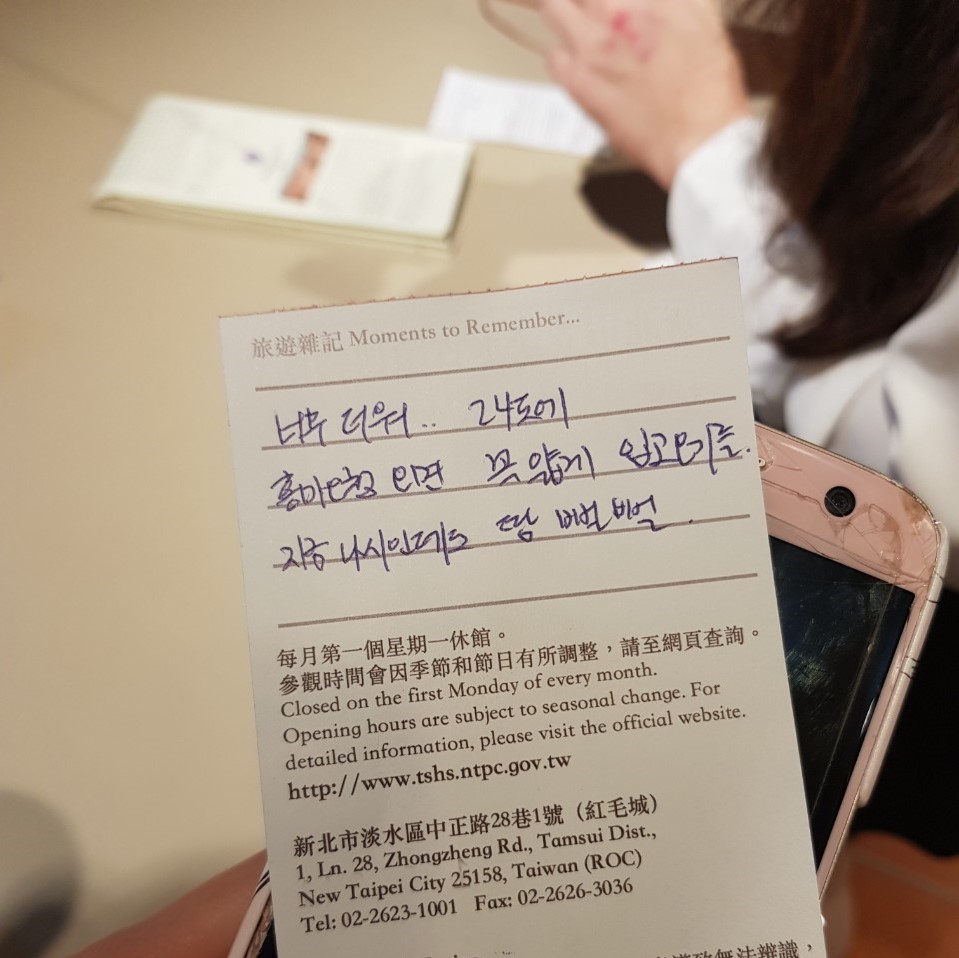 旅遊雜記 Moments to Remember...
너무 더워.. 24도에
홍마오청 오면 꼭 얇게 입고오기를.
지금 나시인데도 땀 뻘뻘.
每月第一個星期一休館。
參觀時間會因季節和節日有所調整，請至網頁查詢。
Closed on the first Monday of every month.
Opening hours are subject to seasonal change. For
detailed information, please visit the official website.
http://www.tshs.ntpc.gov.tw
新北市淡水區中正路28巷1號（紅毛城）
1, Ln. 28, Zhongzheng Rd., Tamsui Dist.,
New Taipei City 25158, Taiwan (ROC)
Tel: 02-2623-1001 Fax: 02-2626-3036
致無法辨識，